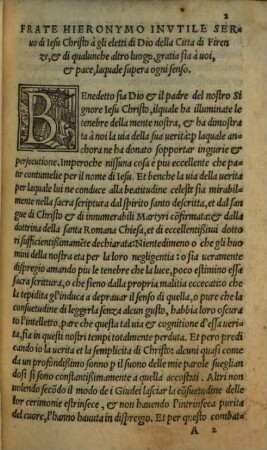 2
FRATE HIERONYMO INVTILE SER
uo di Iesu Christo à gli eletti di Dio della Citta di Firen
ze, & di qualunche altro luogo, gratia sia à uoi,
& pace, laquale supera ogni senso.
BEnedetto sia Dio & il padre del nostro Si
gnore Iesu Christo, ilquale ha illuminate le
tenebre della mente nostra, & ha dimostra
ta à noi la uia della sua uerità: p laquale an-
chora ne ha donato sopportar ingurie &
persecutione. Imperoche nissuna cosa e piu eccellente che pa-
tir contumelie per il nome di Iesu. Et benche la uia della uerita
per laquale lui ne conduce alla beatitudine celest sia mirabil-
mente nella sacra scriptura dal spirito santo descritta, et dal san
gue di Christo & di innumerabili Martyri cōfirmata: & dalla
dottrina della santa Romana Chiesa, et di eccellentißimi dotto
ri sufficientißimamēte dechiarata: Nientedimeno o che gli huo
mini della nostra eta per la loro negligentia: o sia ueramente
dispregio amando piu le tenebre che la luce, poco estimino essa
sacra scrittura, o che sieno dalla propria malitia excecati: o che
la tepidita gl'induca a deprauar il senso di quella, o pure che la
cōsuetudine di leggerla senza alcun gusto, habbia loro oscura
to l'intelletto, pare che questa tal uia & cognitione d'essa ueri-
ta, sia in questi nostri tempi totalmente perduta. Et pero predi
cando io la uerita et la semplicita di Christo: alcuni quasi come
da un profondißimo sonno p il suono delle mie parole sueglian
dosi si sono constantißimamente a quella accostati. Altri non
uolendo secōdo il modo de i Giudei lasciar la cōsuetudine del
lor cerimonie estrinsece, & non hauendo l'intrinseca purita
del cuore, l'hanno hauuta in dispregio. Et per questo combat-
A 2